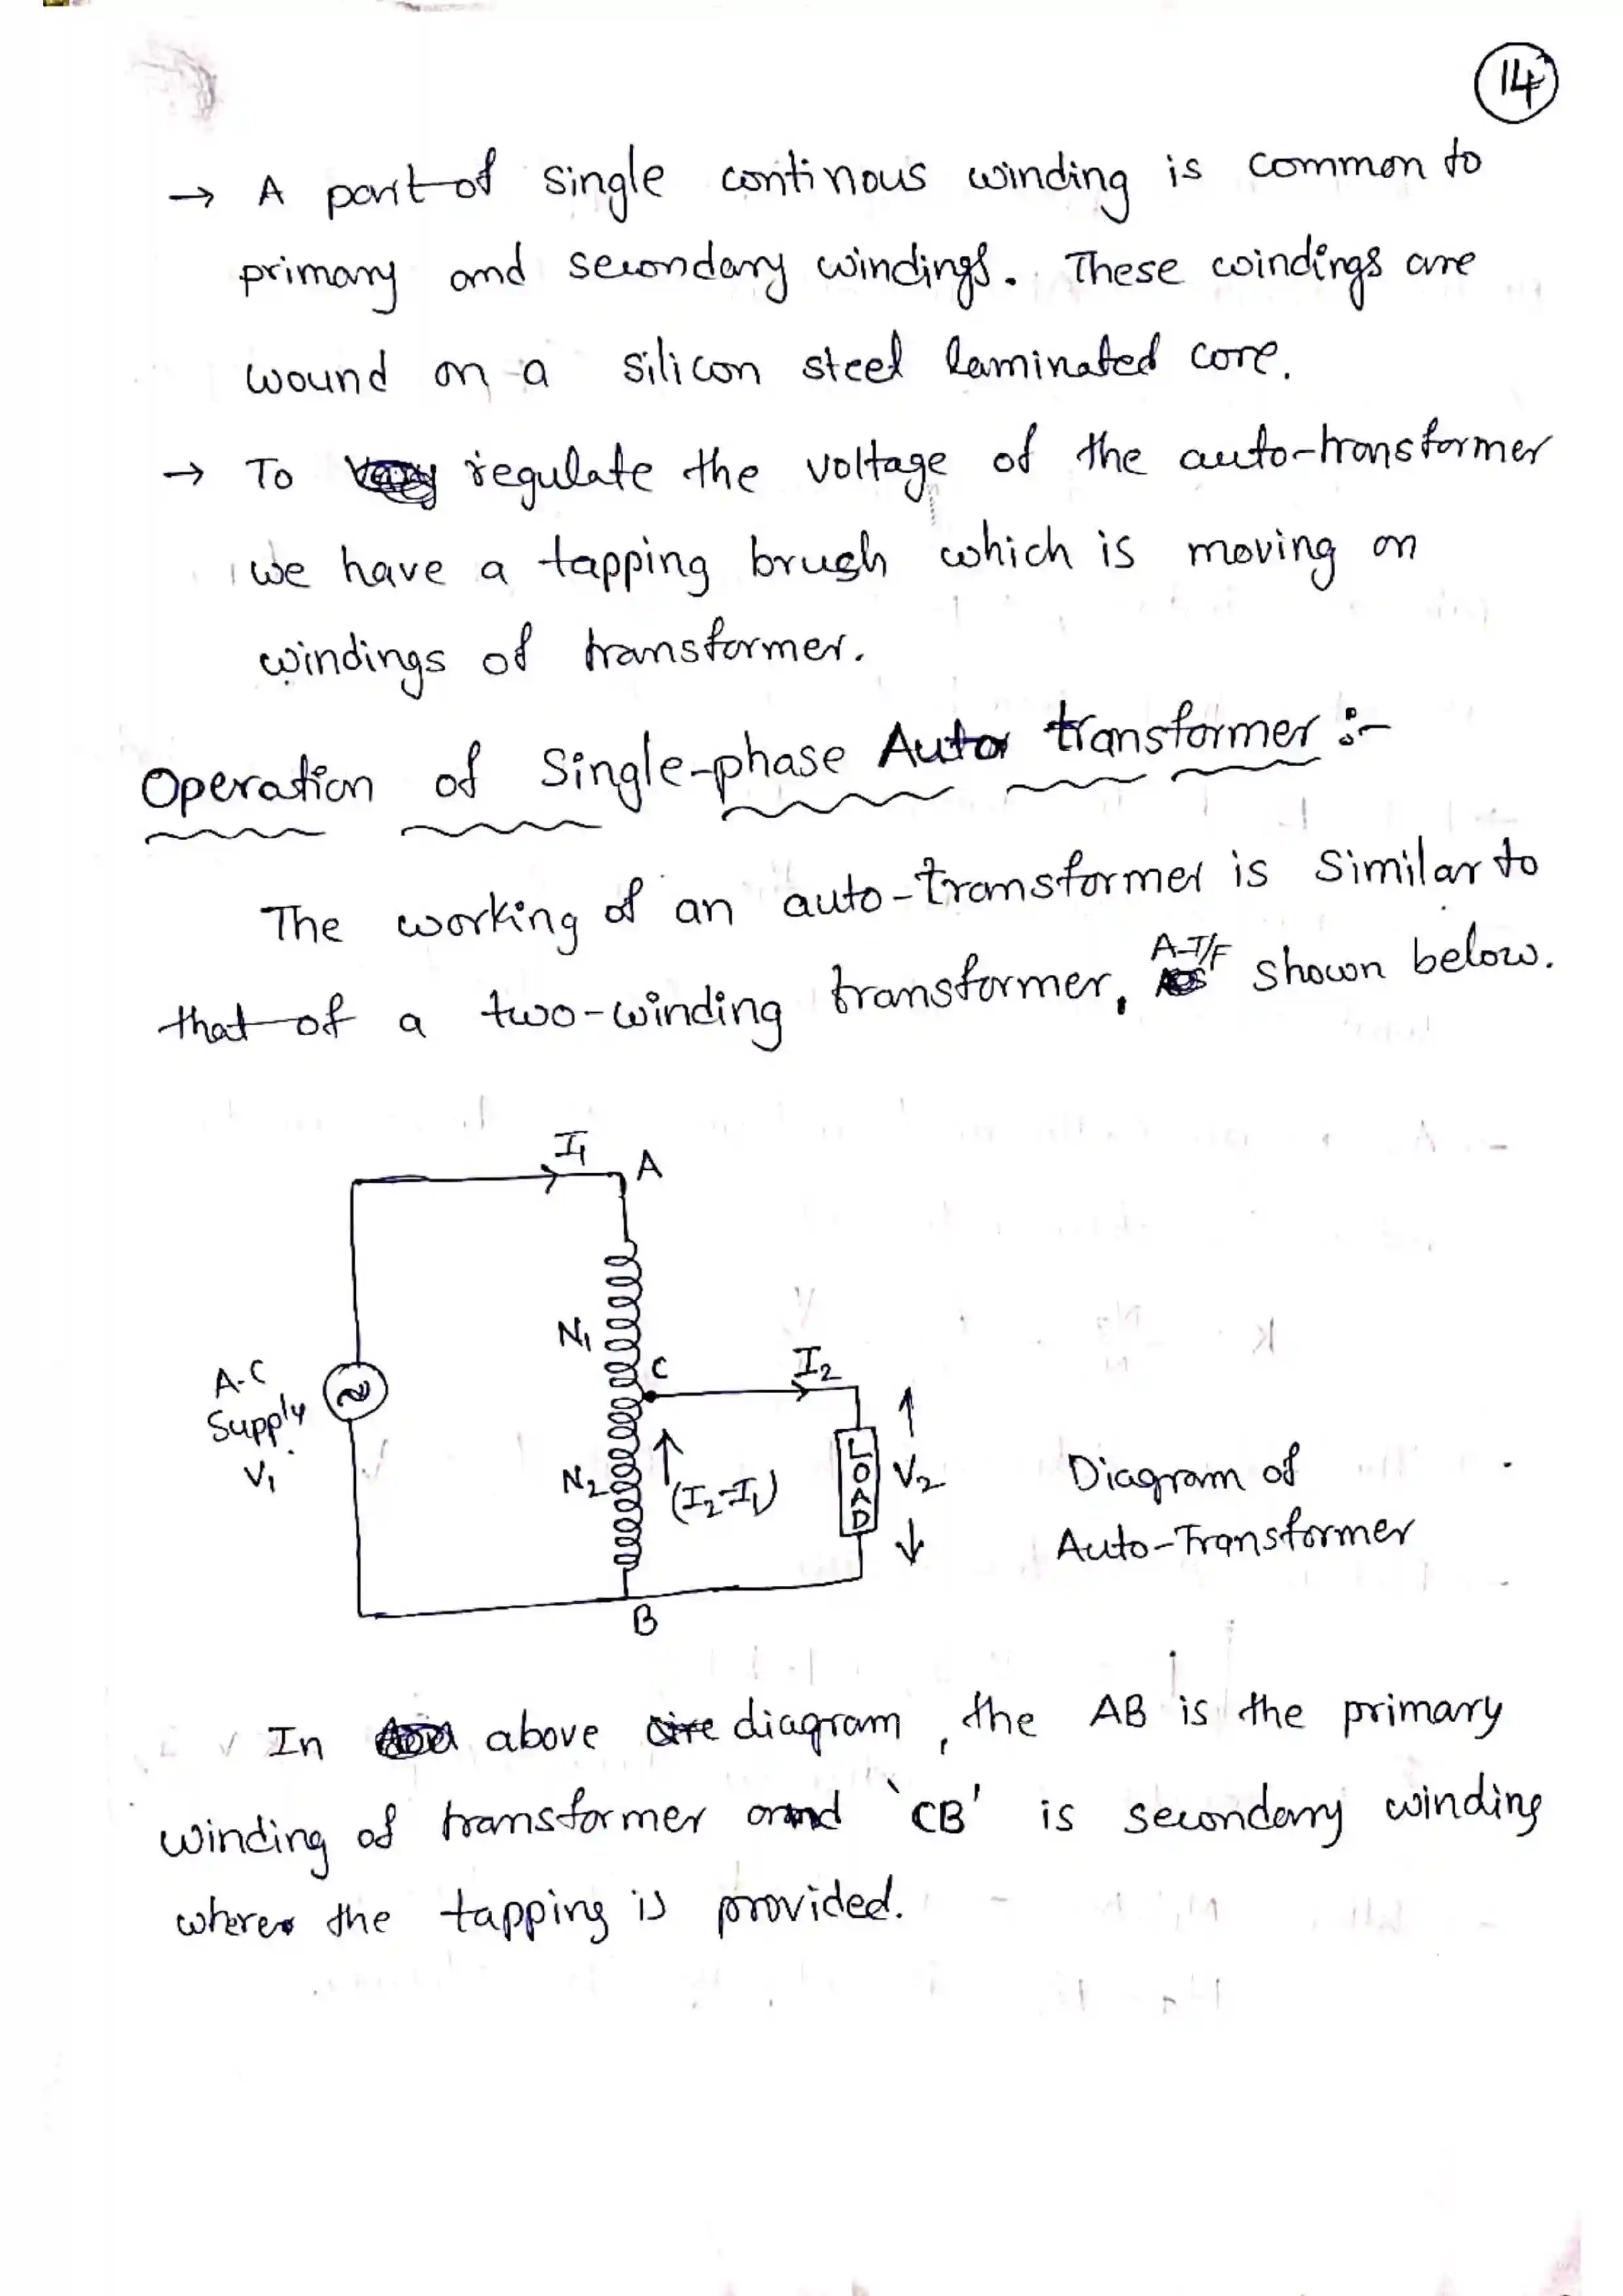 14
→ A part of single continous winding is common to
primary and secondary windings. These windings are
wound on a silicon steel laminated core.
→ To regulate the voltage of the auto-transformer
we have a tapping brush which is moving on
windings of transformer.
Operation of Single-phase Auto transformer :-
The working of an auto-transformer is similar to
that of a two-winding transformer, A-T/F shown below.
I1
A
N1
C
I2
A-C
Supply
V1
N2
(I2-I1)
LOAD
V2
Diagram of
Auto-Transformer
B
In above diagram, the AB is the primary
winding of transformer and 'CB' is secondary winding
where the tapping is provided.